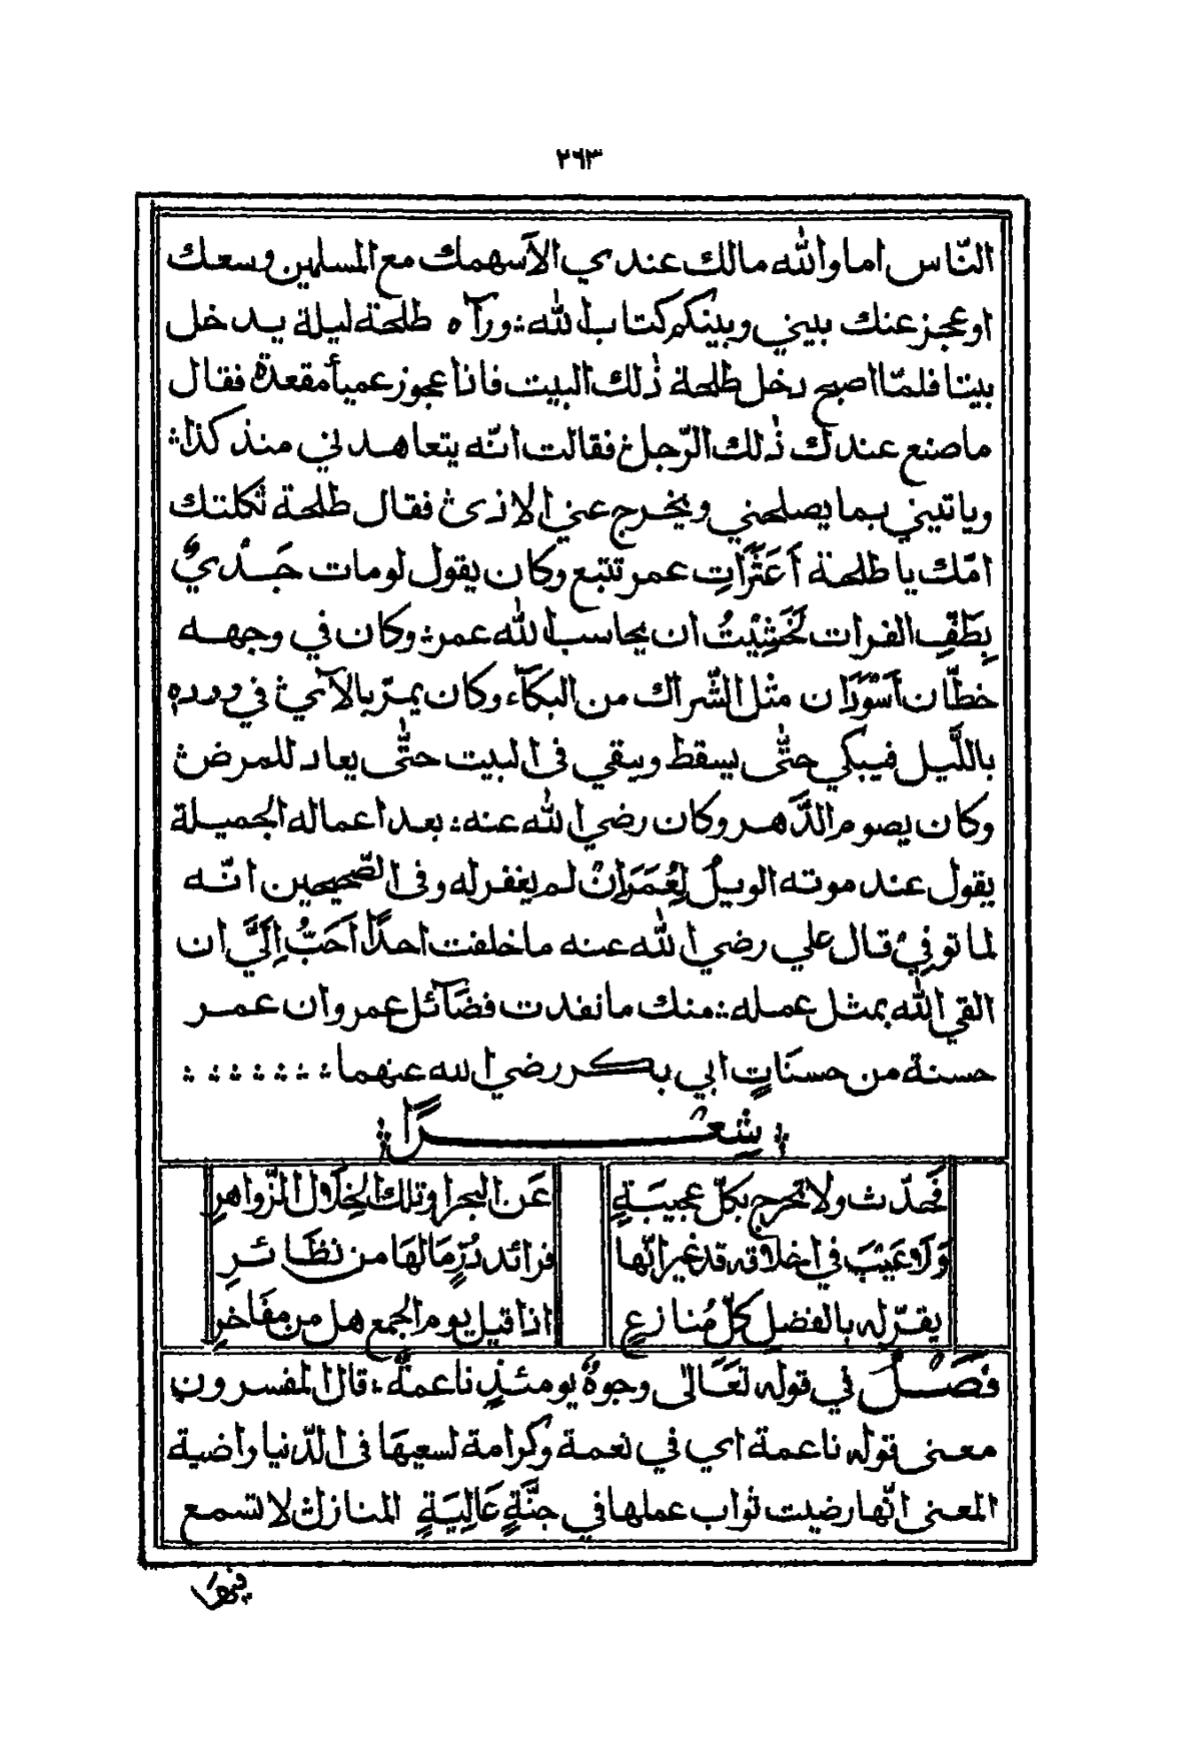 ٢٦٣
النّاس اما والله مالك عندي الاّ سهمك مع المسلمين وسعك
او عجز عنك بيني وبينكم كتاب الله ؞ ورآه طلحة ليلة يدخل
بيتا فلمّا اصبح دخل طلحة ذٰلك البيت فاذا عجوز عميأ مقعدة فقال
ما صنع عندك ذٰلك الرّجل ؞ فقالت انّه يتعاهدني منذ كذا ؞
وياتيني بما يصلحني ويخرج عني الاذى ؞ فقال طلحة ثكلتك
امّك يا طلحة أَعَثَرَاتِ عمر تتبع وكان يقول لو مات جَدْيٌ
بِطَفِّ الفرات لَخَشِيْتُ ان يحاسب الله عمر ؞ وكان في وجهه
خطّان أَسْوَدَان مثل الشّراك من البكآء وكان يمرّ بالآي ؞ في ورده
باللَّيل فيبكي حتّٰى يسقط ويبقي في البيت حتّٰى يعاد للمرض ؞
وكان يصوم الدَّهر وكان رضي الله عنه ؞ بعد اعماله الجميلة
يقول عند موته الويلُ لِعُمَرَ اِنْ لم يغفر له وفى الصّحيحين انّه
لما توفيْ قال علي رضي الله عنه ما خلفت احدًا اَحَبُّ اِلَيَّ ان
القي الله بمثل عمله ؞ منك ما نفدت فضَآئل عمر وان عمر
حسنة من حسنَاتٍ ابي بكر رضي الله عنهما ؞ ؞ ؞ ؞ ؞ ؞ ؞
؞ شِعْرًا ؞
فَحَدّث ولا تحرج بكلّ عجيبَةٍ عَن البحر او تلك الخِلَالِ الزّواهرِ
وَلَا عَيْبَ في اخلاقه قد غير انّها فرائد دُرٍّ مَا لهَا من نظَائرِ
يقرّ له بالفضل كلّ مُنازعٍ اذا قيل يوم الجمع هل من مفَاخرِ
فَصْلٌ في قوله تعَالى وجوهٌ يومئذٍ ناعمةٌ ؞ قال المفسرون
معنى قوله ناعمة اي في نعمة وكرامة لسعيهَا فى الدّنيا راضية
المعنى انّها رضيت ثواب عملها في جنَّةٍ عَالِيَةٍ المنازل ؞ لا تسمع
فيهَا